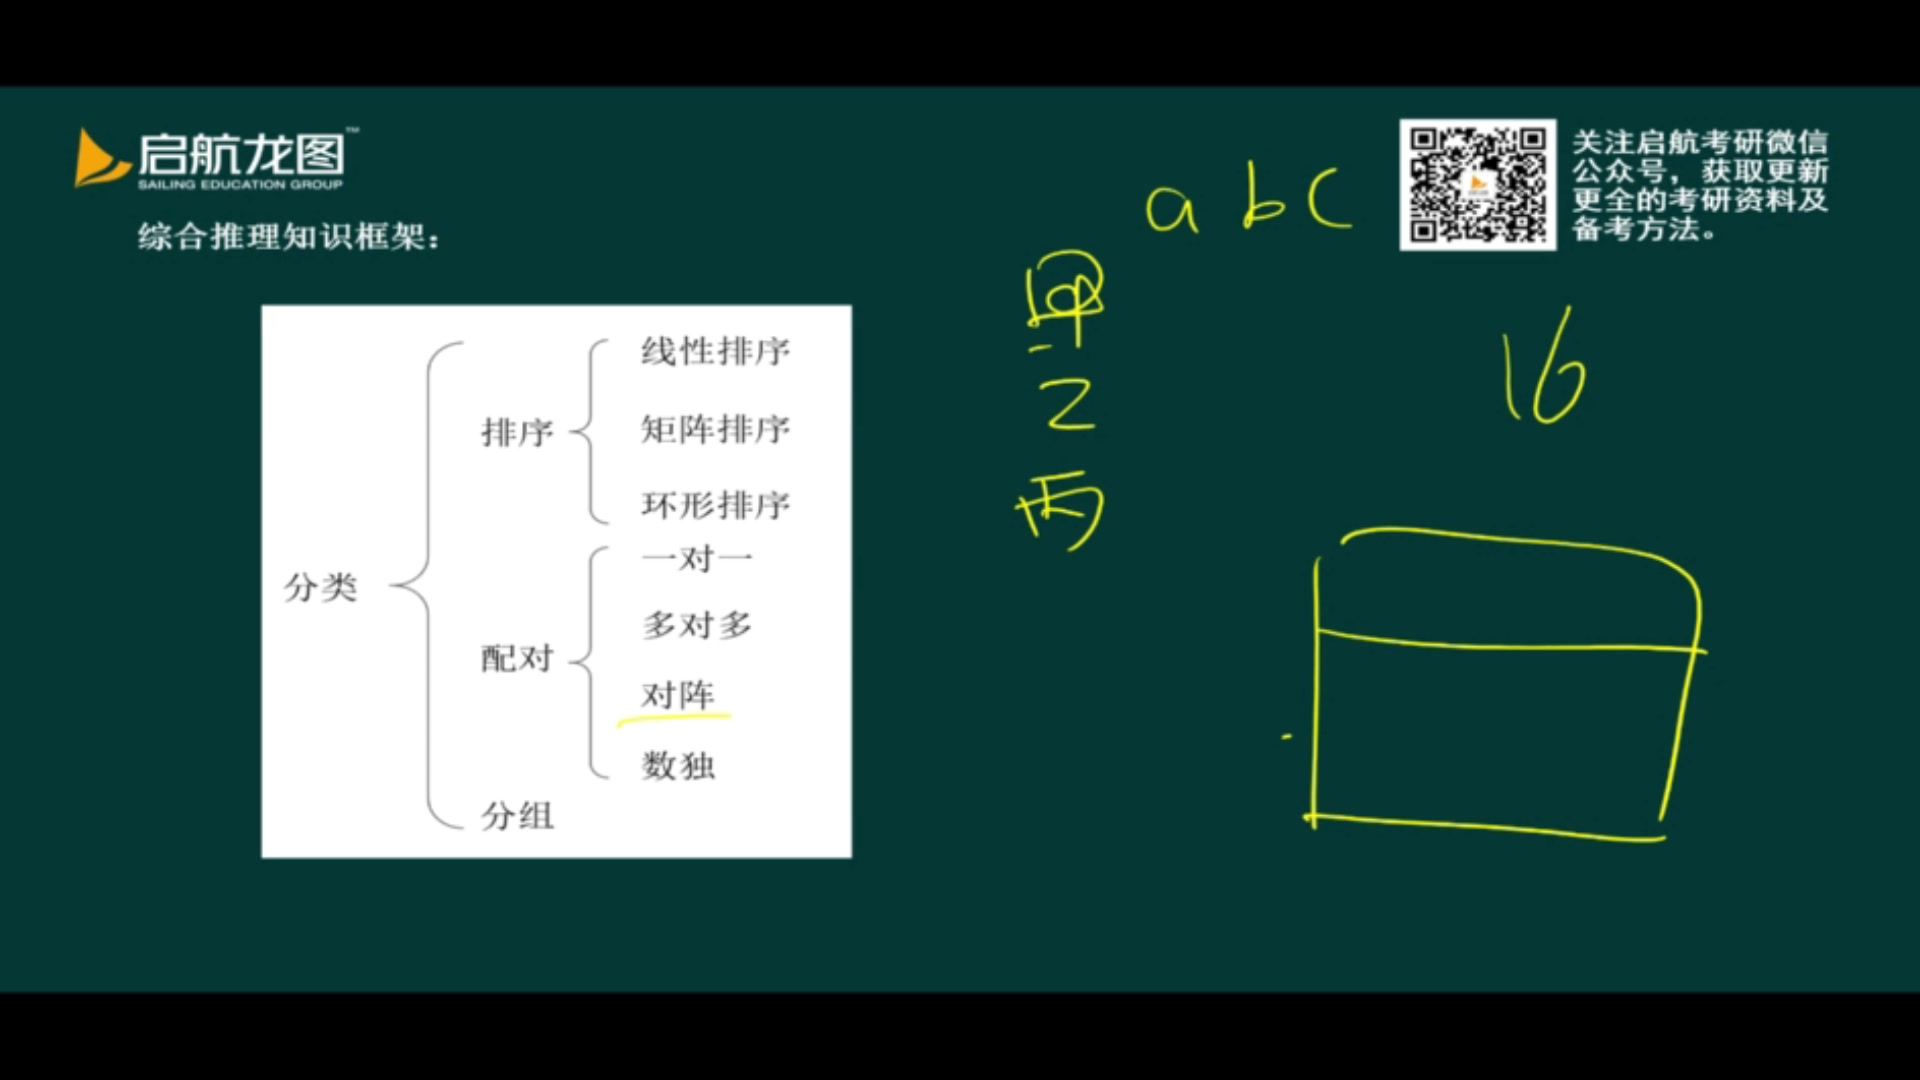 启航龙图™
SAILING EDUCATION GROUP
关注启航考研微信
公众号，获取更新
更全的考研资料及
备考方法。
综合推理知识框架：
分类
排序
线性排序
矩阵排序
环形排序
配对
一对一
多对多
对阵
数独
分组
a b c
甲
乙
丙
16